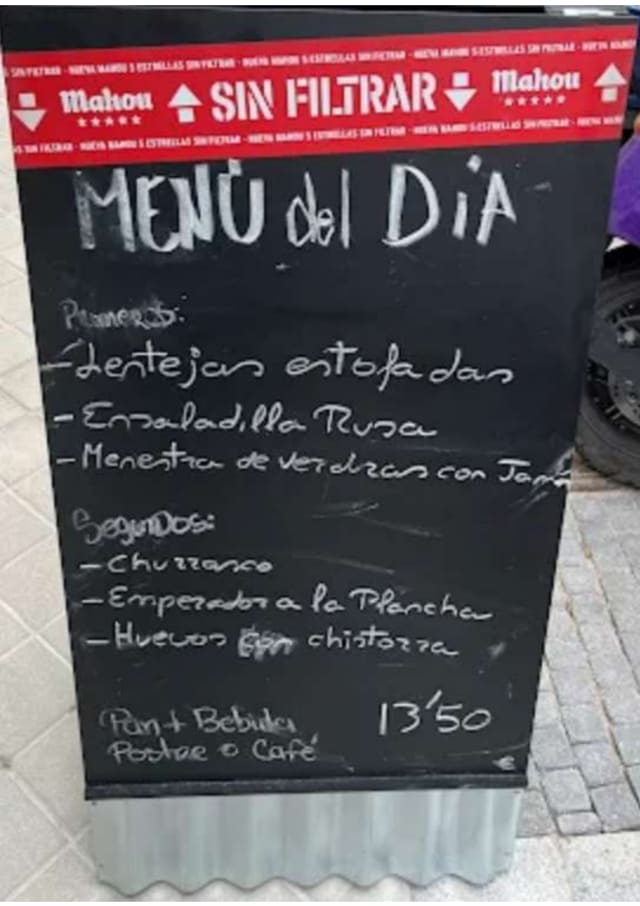 S SIN FILTRAR - NUEVA MAHOU 5 ESTRELLAS SIN FILTRAR - NUEVA MAHOU 5 ESTRELLAS SIN FILTRAR - NUEVA MAHOU 5 ESTRELLAS SIN FILTRAR - NUEVA MAHOU
Mahou SIN FILTRAR Mahou
AS SIN FILTRAR - NUEVA MAHOU 5 ESTRELLAS SIN FILTRAR - NUEVA MAHOU 5 ESTRELLAS SIN FILTRAR - NUEVA MAHOU 5 ESTRELLAS SIN FILTRAR - NUEVA MAHOU
MENÚ del DÍA
Primeros:
- Lentejas estofadas
- Ensaladilla Rusa
- Menestra de verduras con Jamón
Segundos:
- Churrasco
- Emperador a la Plancha
- Huevos con chistorra
Pan + Bebida 13'50
Postre o Café €